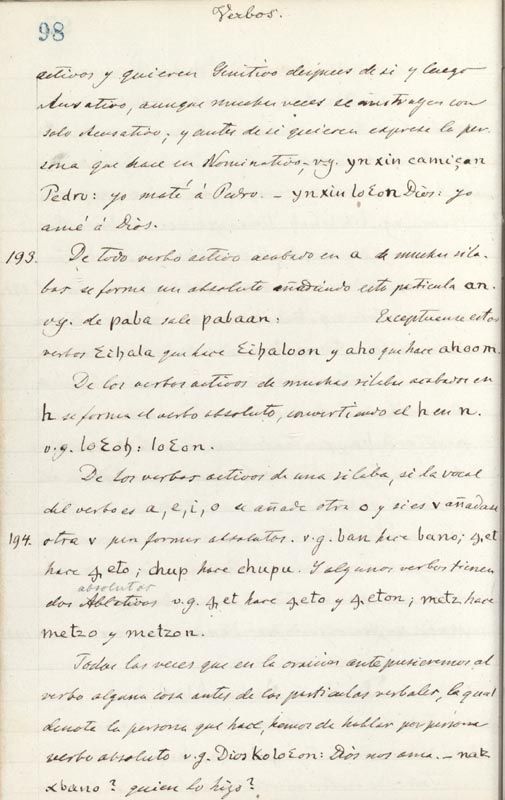 Verbos.
98
activos y quieren Genitivo despues de si y luego
Acusativo, aunque muchas veces se construyen con
solo Acusativo; y antes de si quieren expresa la per-
sona que hace en Nominativo, v.g. ynxin camiçan
Pedro: yo maté á Pedro. – ynxin loƐon Dios: yo
amé á Dios.
193. De todo verbo activo acabado en a de muchas sila-
bas se forma un absoluto añadiendo esta particula an.
v.g. de paba sale pabaan: Exceptuanse estos
verbos Ɛihala que hace Ɛihaloon y aho que hace ahoom.
De los verbos activos de muchas silabas acabados en
h se forma el verbo absoluto, convirtiendo el h en n.
v.g. loƐoh: loƐon.
De los verbos activos de una silaba, si la vocal
del verbo es a, e, i, o se añade otra o y si es v añadase
194. otra v para formar absolutos. v.g. ban hace bano; ꜭet
hace ꜭeto; chup hace chupu. Y algunos verbos tienen
absolutos
dos Ablativos v.g. ꜭet hace ꜭeto y ꜭeton; metz hace
metzo y metzon.
Todas las veces que en la oracion antepusieremos al
verbo alguna cosa antes de las particulas verbales, la qual
denota la persona que hace, hemos de hablar por
verbo absoluto v.g. Dios KoloƐon: Dios nos ama. – nak
xbano? quien lo hizo?